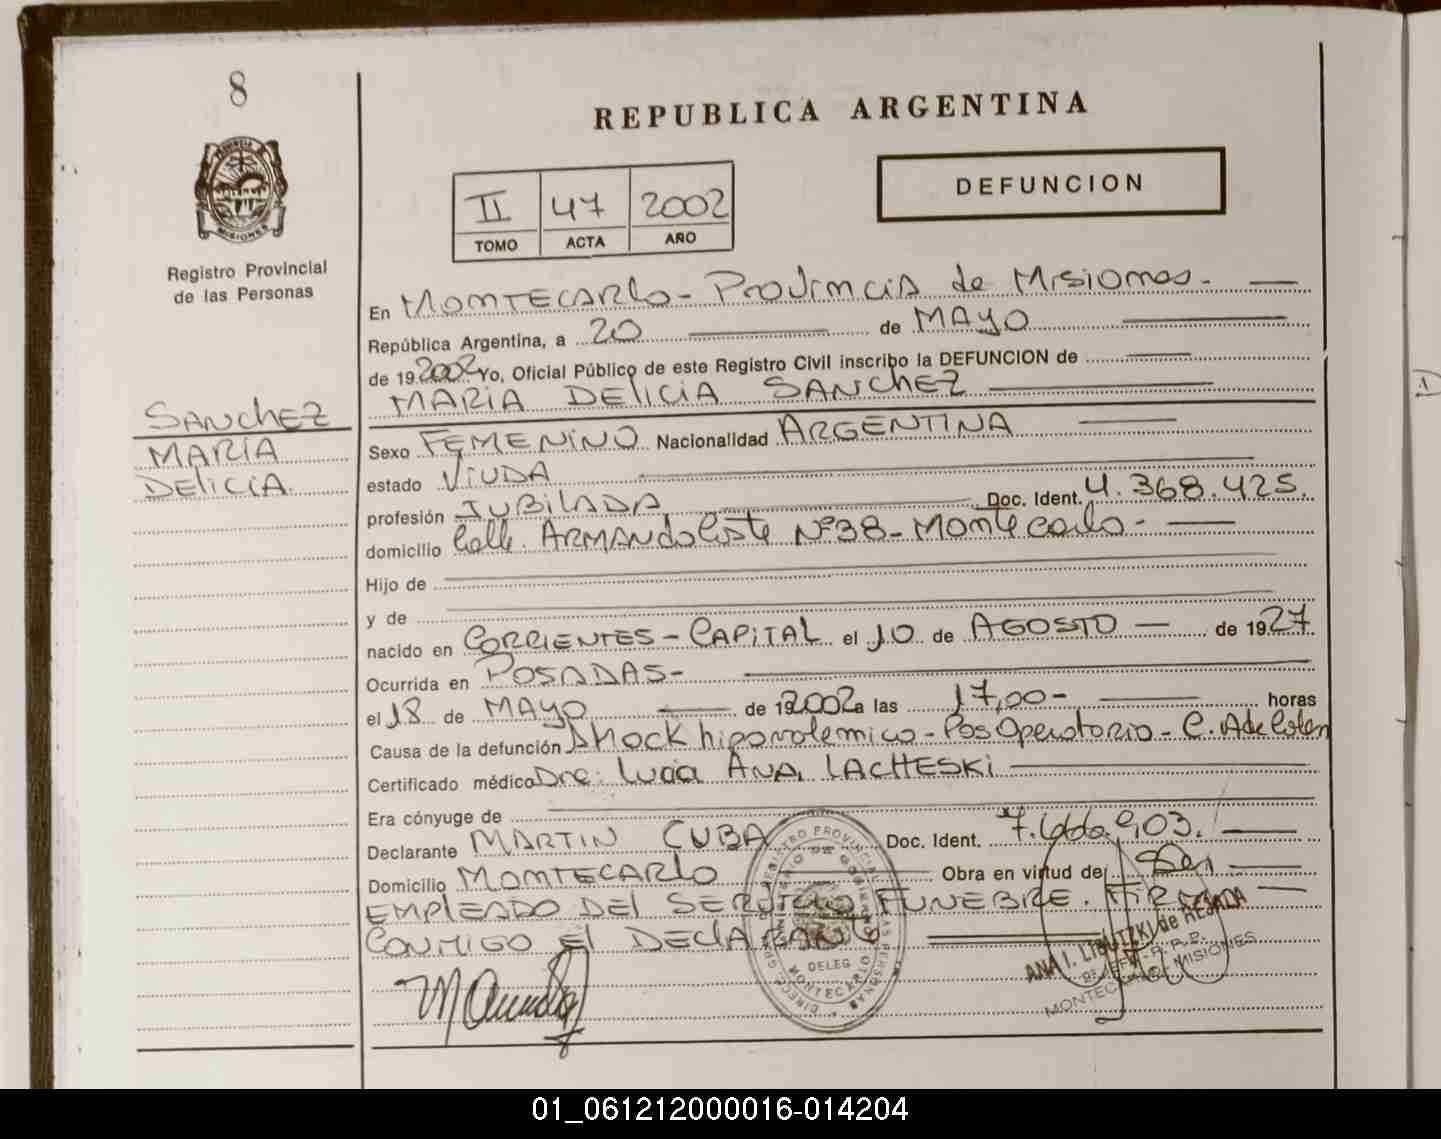 8
REPUBLICA ARGENTINA
DEFUNCION
II 47 2002
TOMO ACTA AÑO
PROVINCIA DE
MISIONES
Registro Provincial
de las Personas
En MONTECARLO - PROVINCIA de MISIONES. -
República Argentina, a 20 de MAYO
de 19 2002 Yo, Oficial Público de este Registro Civil inscribo la DEFUNCION de
MARIA DELICIA SANCHEZ
SANCHEZ
MARIA
DELICIA
Sexo FEMENINO Nacionalidad ARGENTINA
estado VIUDA
profesión JUBILADA Doc. Ident. 4.368.425.
domicilio Calle. ARMANDO Nº38 - Montecarlo -
Hijo de
y de
nacido en CORRIENTES - CAPITAL el 10 de AGOSTO - de 1927
Ocurrida en POSADAS -
el 18 de MAYO de 19 2002 a las 17,00 - horas
Causa de la defunción Shock hipovolemico - PosOperatorio - C. A de
Certificado médico Dra: Lucia ANA LACHESKI
Era cónyuge de
Declarante MARTIN CUBA Doc. Ident. 903.
Domicilio MONTECARLO Obra en virtud de Ser
EMPLEADO DEL SERVICIO FUNEBRE. FIRMA
CONMIGO El DECLARANTE
DELEG
MONTECARLO
ANA I. de
MONTECARLO - MISIONES
01_061212000016-014204